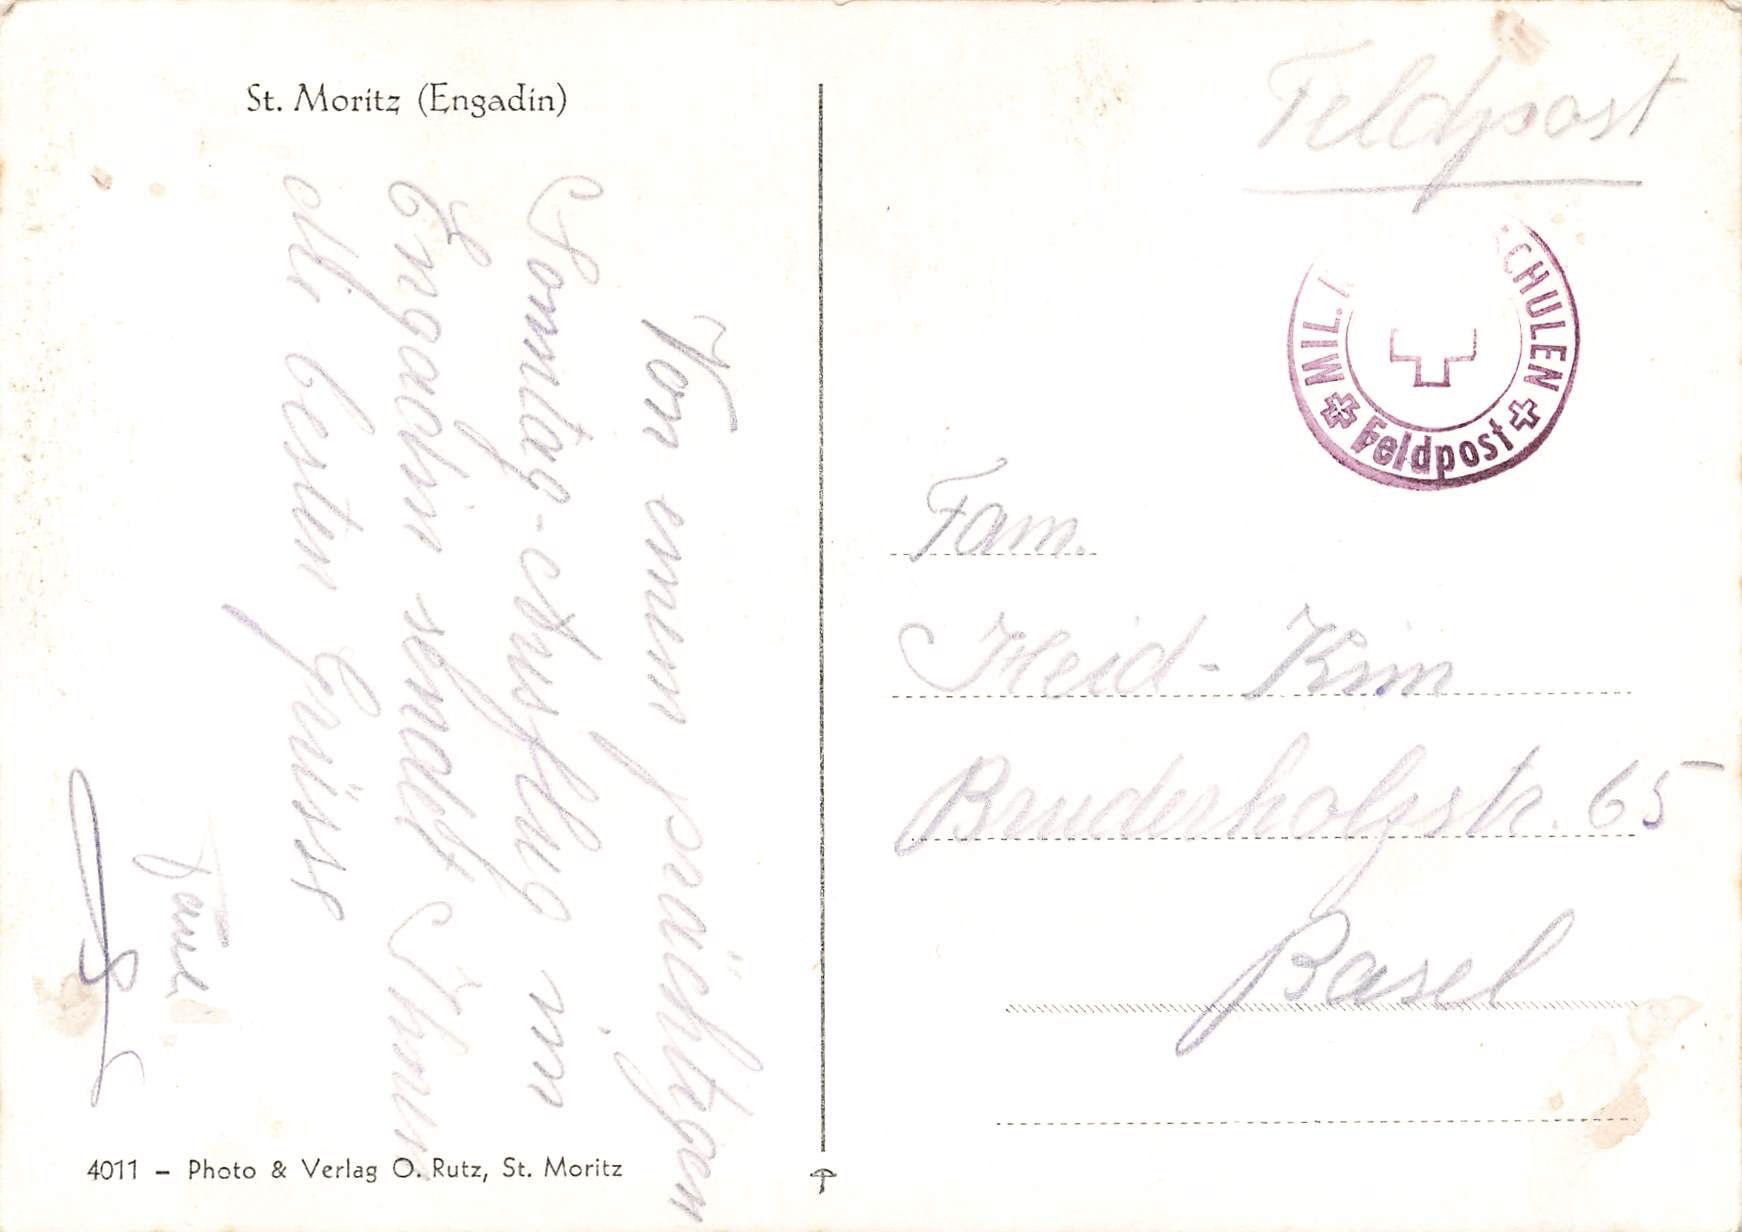 St. Moritz (Engadin)
Von einem prächtigen
Sonntag-Ausflug im
Engadin sendet Ihnen
die besten Grüsse
4011 – Photo & Verlag O. Rutz, St. Moritz
Feldpost
MIL. SCHULEN
Feldpost
Fam.
Heid-Kim
Bruderholzstr. 65
Basel